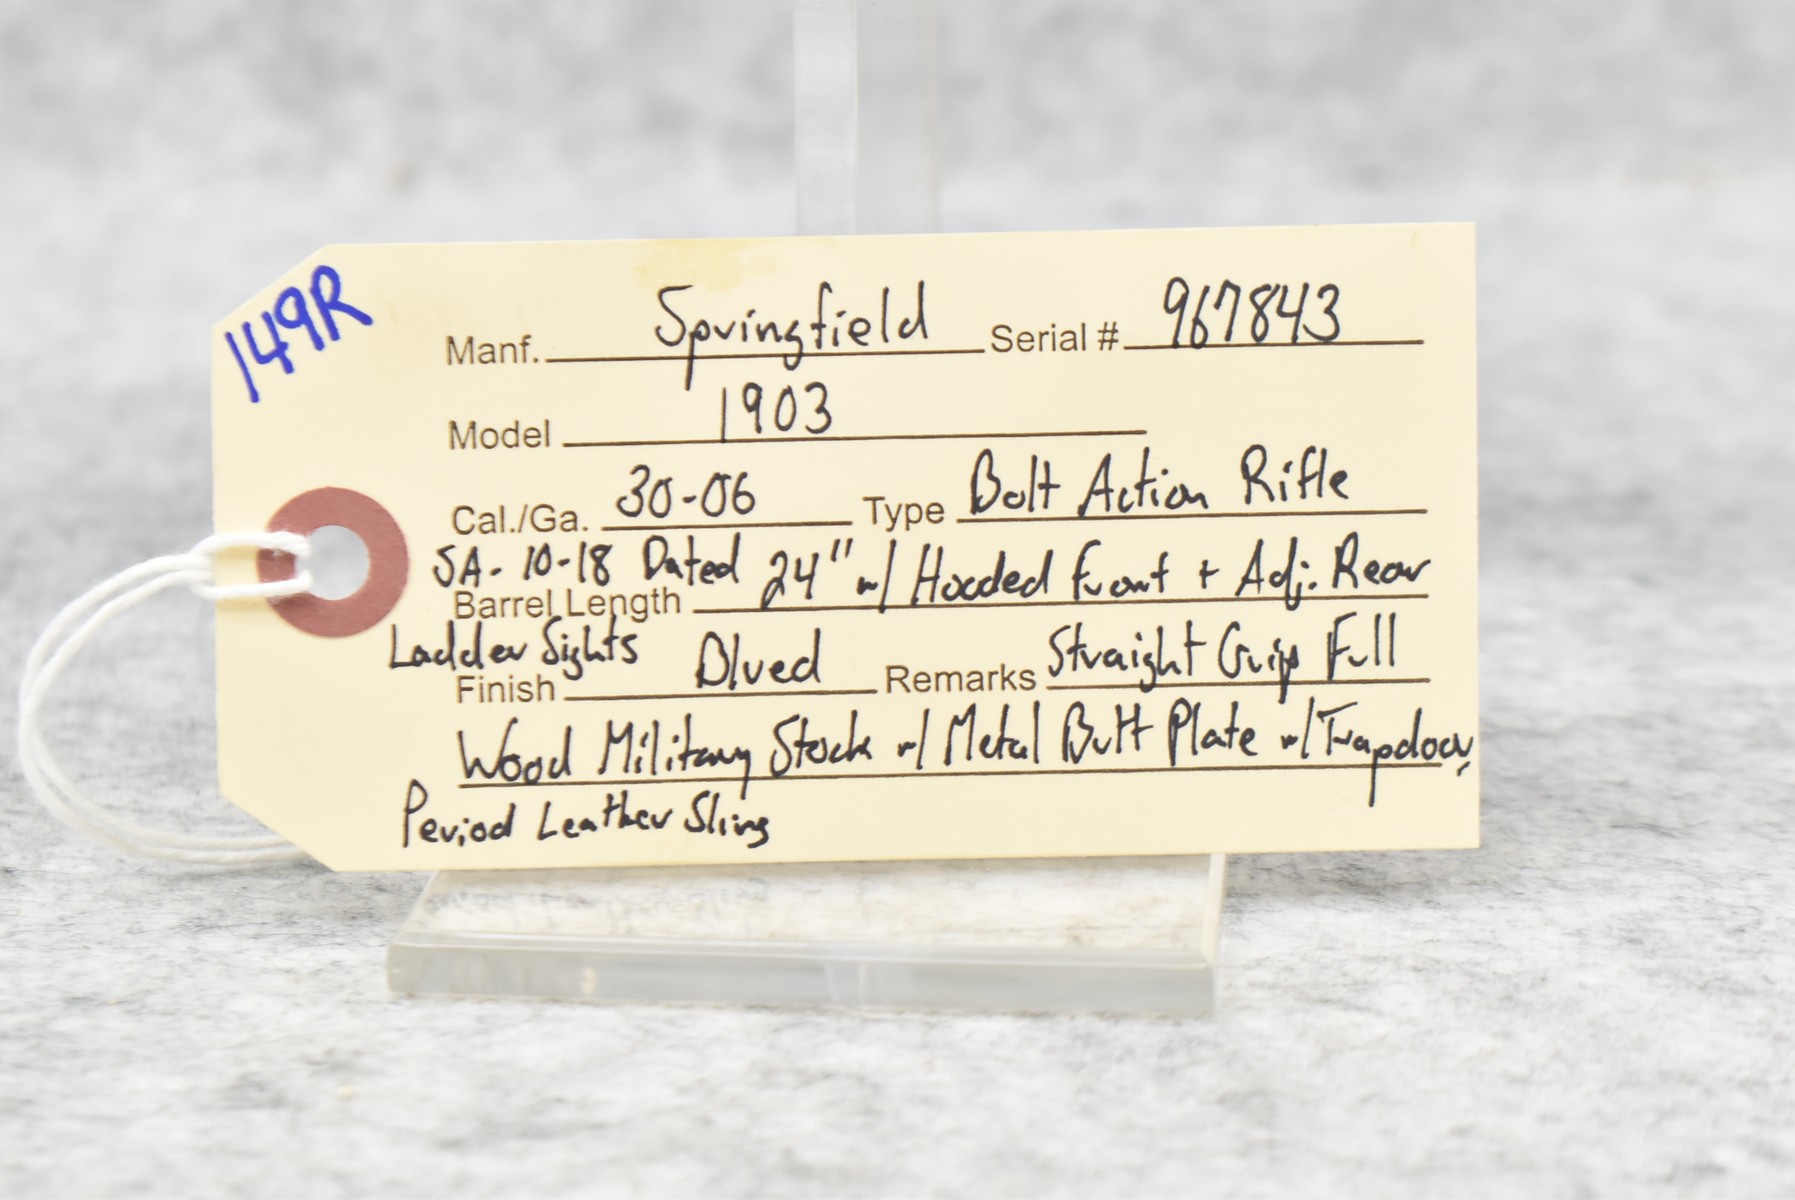 149R
Manf. Springfield Serial # 967843
Model 1903
Cal./Ga. 30-06 Type Bolt Action Rifle
SA- 10-18 Dated 24" w/ Hooded Front + Adj. Rear
Barrel Length
Ladder Sights
Finish Blued Remarks Straight Grip Full
Wood Military Stock w/ Metal Butt Plate w/ Trapdoor,
Period Leather Sling